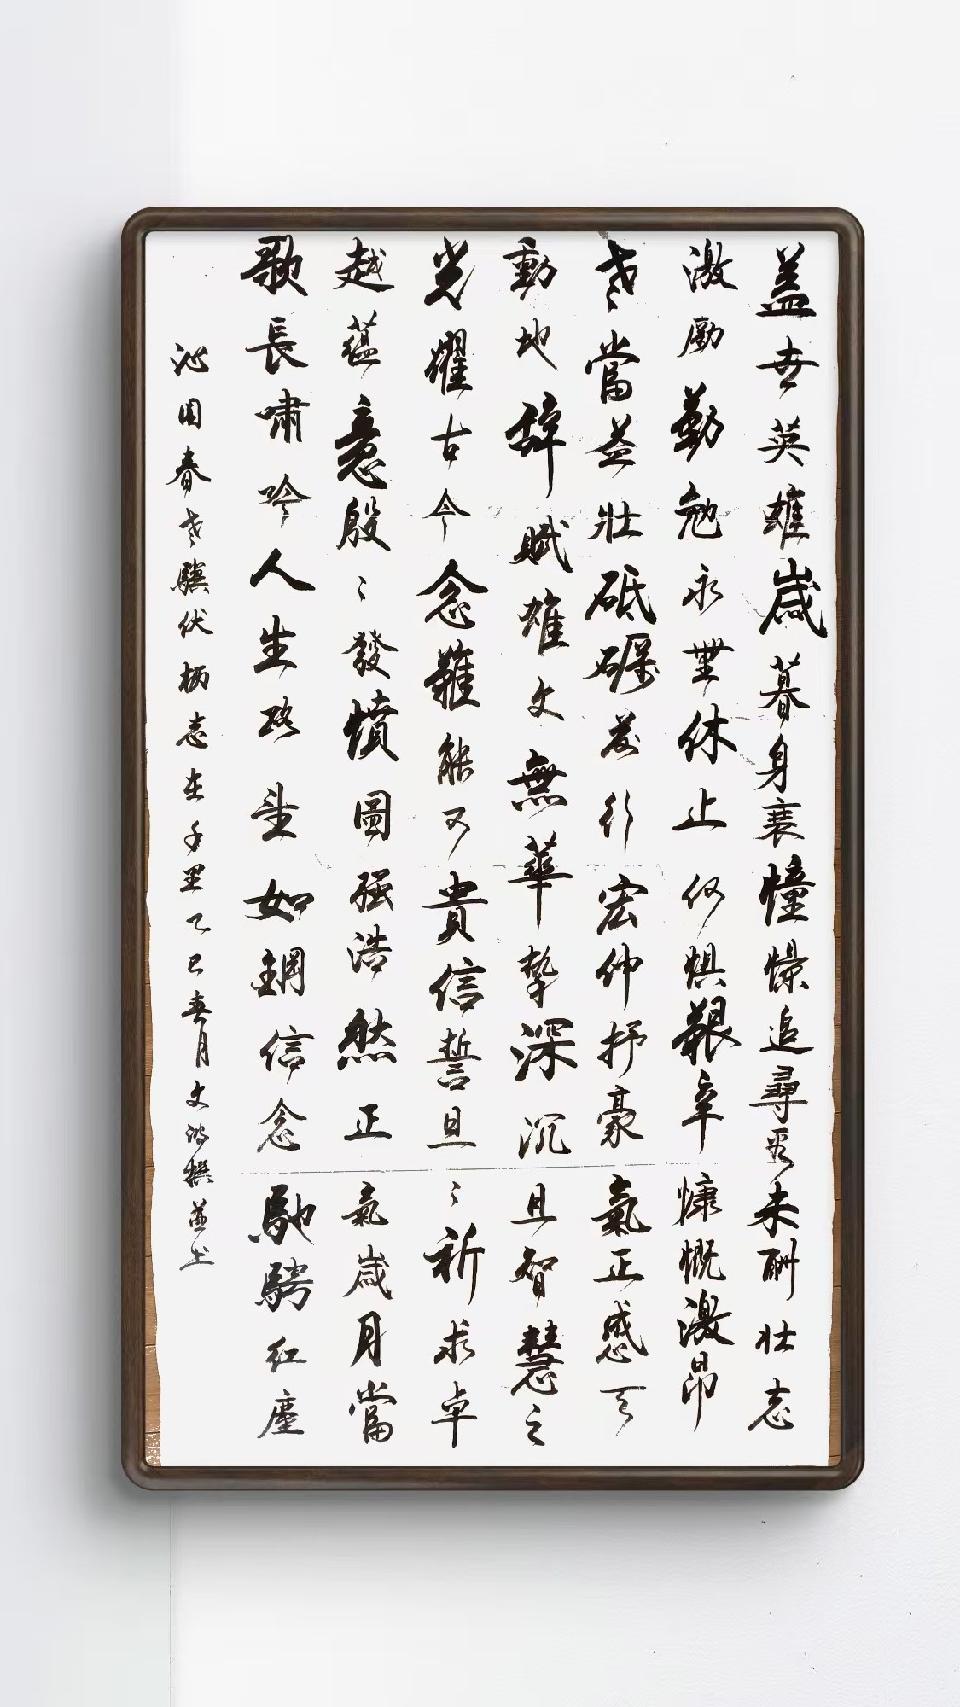 蓋世英雄歲暮身衰憧憬追尋思未酬壯志
激勵勤勉永無休止何懼艱辛慷慨激昂
老當益壯砥礪前行宏伸抒豪氣正感天
動地辭賦雄文無華摯深沉且智慧之
光耀古今念難能可貴信誓旦
〻祈求卓
越蘊意殷〻發憤圖强浩然正氣歲月當
歌長嘯吟人生路堅如鋼信念馳騁紅塵
沁園春老驥伏櫪志在千里乙巳春月文鴻撰並書